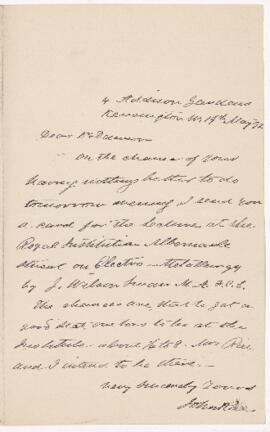 4 Addison Gardens
Kensington W. 19th May/92
Dear Mr
On the chance of your
having nothing better to do
tomorrow evening I send you
a card for the lecture at the
Royal Institution Albemarle
Street on Electro-Metallurgy
by J. Wilson Swan M.A. F.C.S.
The chances are, that to get a
good seat, one has to be at the
Institute about to 8. Mrs Rae
and I intend to be there.
Very Sincerely Yours
John Rae